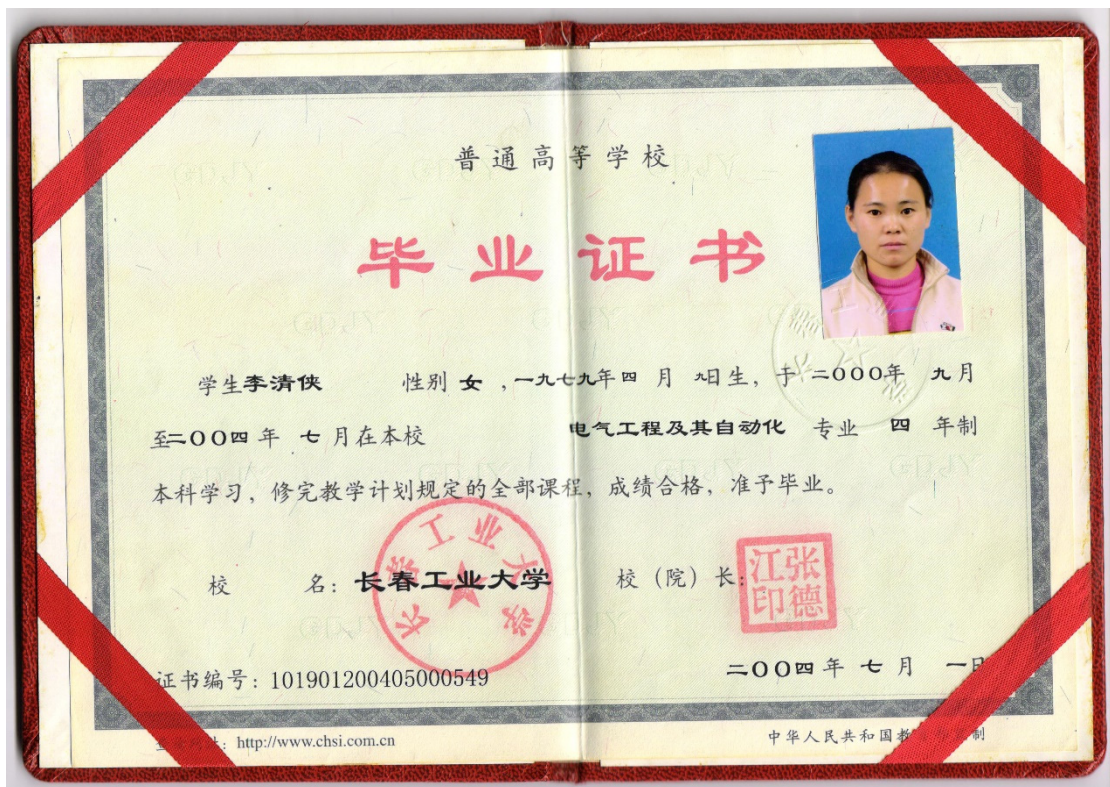 普通高等学校
毕业证书
学生李清侠 性别 女 ，一九七九年四 月 九日生，于 二〇〇〇年 九月
至二〇〇四 年 七 月在本校 电气工程及其自动化 专业 四 年制
本科学习，修完教学计划规定的全部课程，成绩合格，准予毕业。
校 名：长春工业大学 校（院）长：
长春工业大学
张德江印
证书编号：101901200405000549 二〇〇四 年 七 月 一日
：http://www.chsi.com.cn 中华人民共和国教 制